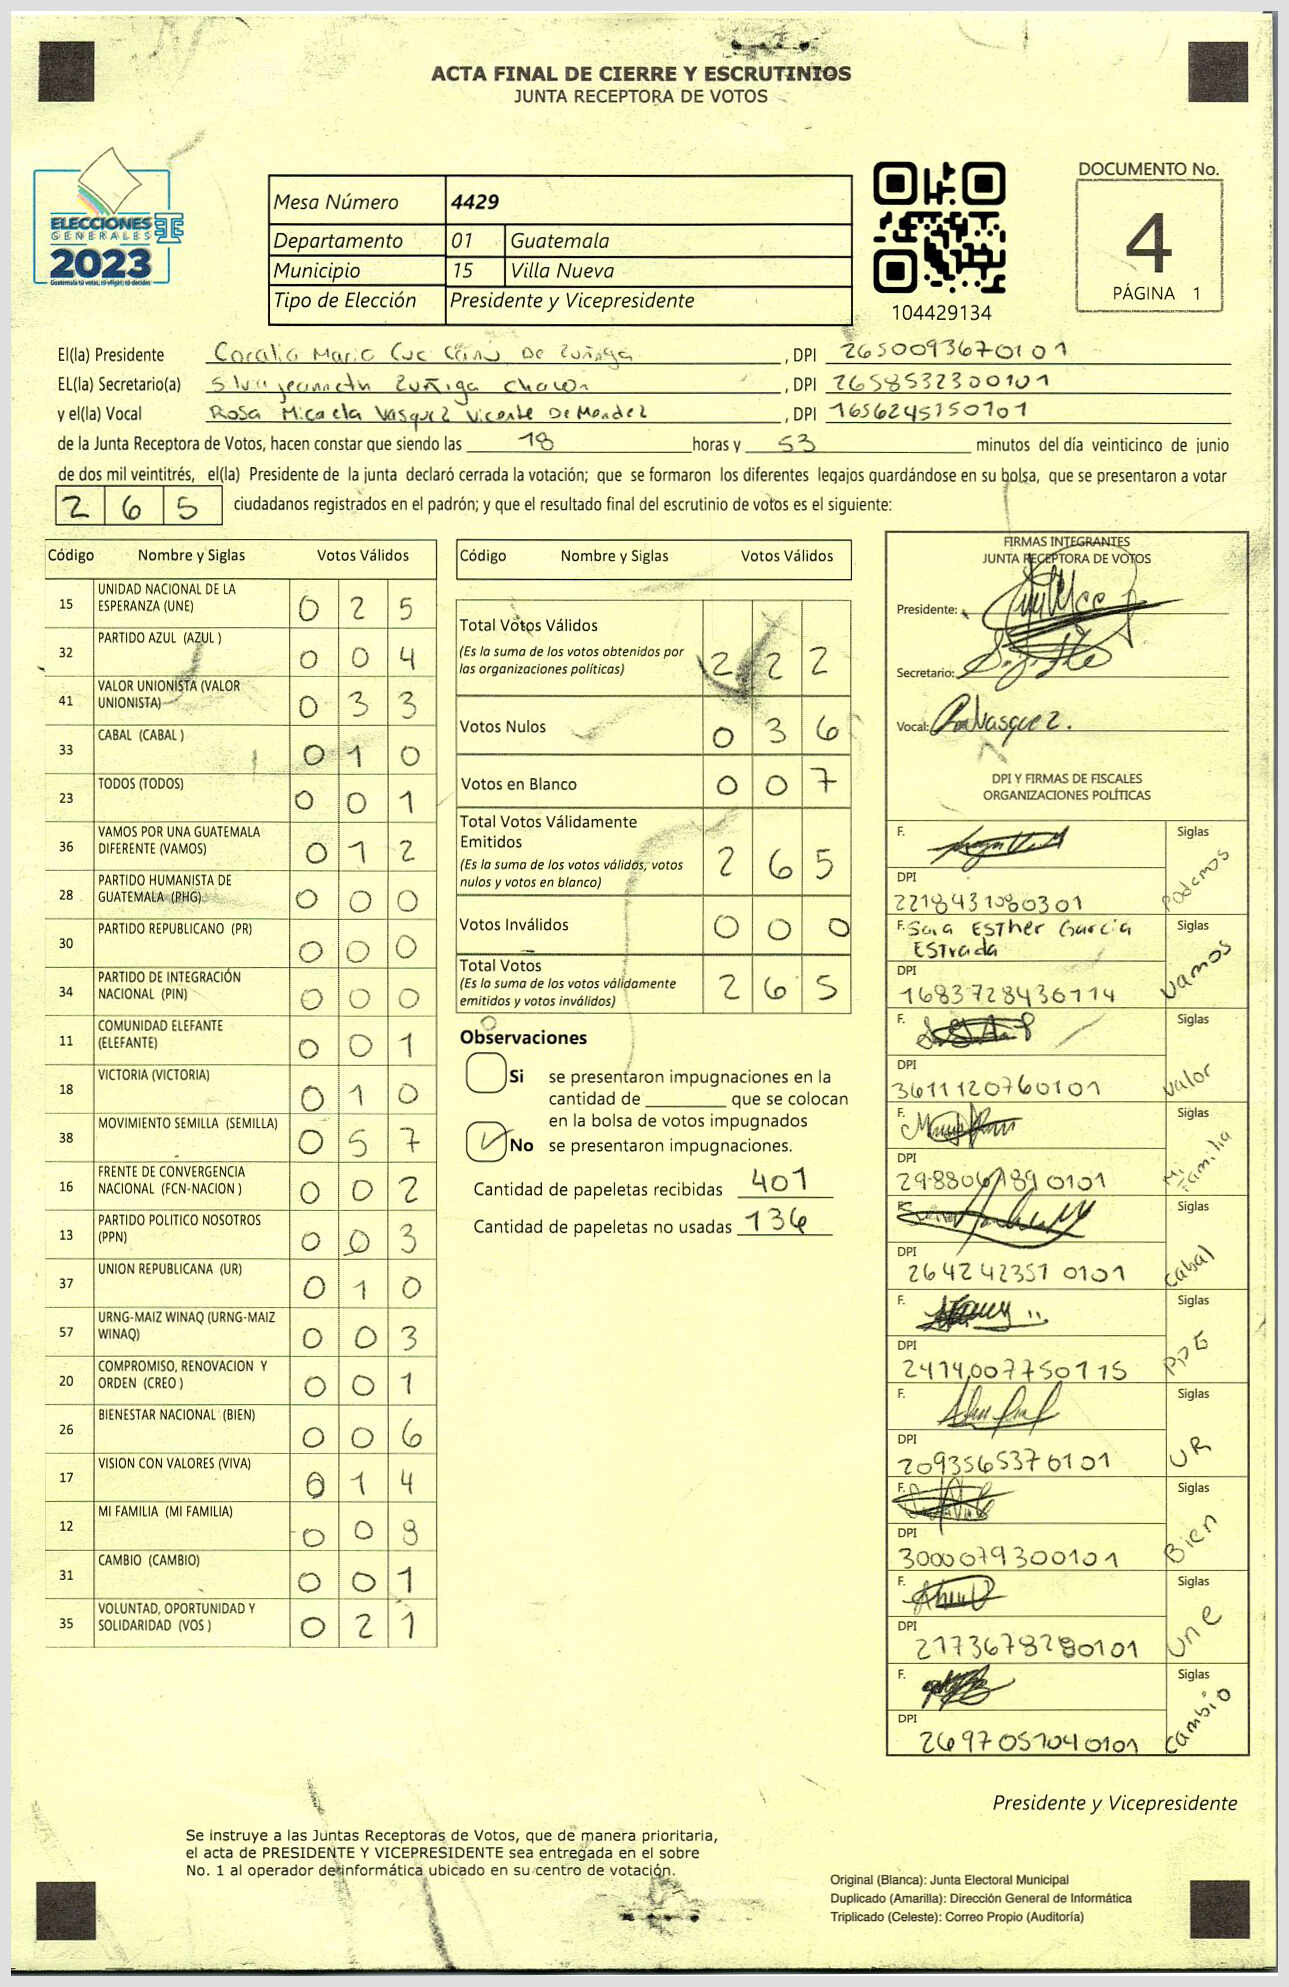 ACTA FINAL DE CIERRE Y ESCRUTINIOS
JUNTA RECEPTORA DE VOTOS
ELECCIONES
GENERALES
2023
Guatemala tú votas, tú eliges, tú decides
Mesa Número 4429
Departamento 01 Guatemala
Municipio 15 Villa Nueva
Tipo de Elección Presidente y Vicepresidente
104429134
DOCUMENTO No.
4
PÁGINA 1
El(la) Presidente Coralia Mario Cuc De Zuñiga, DPI 2650093670101
EL(la) Secretario(a) Silvia jeanneth Zuñiga Chacon, DPI 2658532300101
y el(la) Vocal Rosa Micaela Vasquez Vicente De Mendez, DPI 1656245750101
de la Junta Receptora de Votos, hacen constar que siendo las 18 horas y 53 minutos del día veinticinco de junio
de dos mil veintitrés, el(la) Presidente de la junta declaró cerrada la votación; que se formaron los diferentes legajos guardándose en su bolsa, que se presentaron a votar
265 ciudadanos registrados en el padrón; y que el resultado final del escrutinio de votos es el siguiente:
Código Nombre y Siglas Votos Válidos
15 UNIDAD NACIONAL DE LA
ESPERANZA (UNE) 0 2 5
32 PARTIDO AZUL (AZUL ) 0 0 4
41 VALOR UNIONISTA (VALOR
UNIONISTA) 0 3 3
33 CABAL (CABAL ) 0 1 0
23 TODOS (TODOS) 0 0 1
36 VAMOS POR UNA GUATEMALA
DIFERENTE (VAMOS) 0 1 2
28 PARTIDO HUMANISTA DE
GUATEMALA (PHG) 0 0 0
30 PARTIDO REPUBLICANO (PR) 0 0 0
34 PARTIDO DE INTEGRACIÓN
NACIONAL (PIN) 0 0 0
11 COMUNIDAD ELEFANTE
(ELEFANTE) 0 0 1
18 VICTORIA (VICTORIA) 0 1 0
38 MOVIMIENTO SEMILLA (SEMILLA) 0 5 7
16 FRENTE DE CONVERGENCIA
NACIONAL (FCN-NACION ) 0 0 2
13 PARTIDO POLITICO NOSOTROS
(PPN) 0 0 3
37 UNION REPUBLICANA (UR) 0 1 0
57 URNG-MAIZ WINAQ (URNG-MAIZ
WINAQ) 0 0 3
20 COMPROMISO, RENOVACION Y
ORDEN (CREO ) 0 0 1
26 BIENESTAR NACIONAL (BIEN) 0 0 6
17 VISION CON VALORES (VIVA) 0 1 4
12 MI FAMILIA (MI FAMILIA) 0 0 8
31 CAMBIO (CAMBIO) 0 0 1
35 VOLUNTAD, OPORTUNIDAD Y
SOLIDARIDAD (VOS ) 0 2 1
Código Nombre y Siglas Votos Válidos
Total Votos Válidos
(Es la suma de los votos obtenidos por
las organizaciones políticas) 2 2 2
Votos Nulos 0 3 6
Votos en Blanco 0 0 7
Total Votos Válidamente
Emitidos
(Es la suma de los votos válidos, votos
nulos y votos en blanco) 2 6 5
Votos Inválidos 0 0 0
Total Votos
(Es la suma de los votos válidamente
emitidos y votos inválidos) 2 6 5
Observaciones
Si se presentaron impugnaciones en la
cantidad de ________ que se colocan
en la bolsa de votos impugnados
No se presentaron impugnaciones.
Cantidad de papeletas recibidas 401
Cantidad de papeletas no usadas 136
FIRMAS INTEGRANTES
JUNTA RECEPTORA DE VOTOS
Presidente:
Secretario:
Vocal: Vasquez.
DPI Y FIRMAS DE FISCALES
ORGANIZACIONES POLÍTICAS
F. Siglas
DPI Podemos
2218431080301
F. Sara ESTher Garcia Siglas
ESTrada
DPI Vamos
1683728436114
F. Siglas
DPI Valor
3611120760101
F. Siglas
DPI Mi Familia
298806789 0101
F. Siglas
DPI Cabal
264242351 0101
F. Siglas
DPI
2414007750115
F. Siglas
DPI UR
2093565370101
F. Siglas
DPI Bien
3000079300101
F. Siglas
DPI Une
2173678280101
F. Siglas
DPI Cambio
2697051040101
Presidente y Vicepresidente
Se instruye a las Juntas Receptoras de Votos, que de manera prioritaria,
el acta de PRESIDENTE Y VICEPRESIDENTE sea entregada en el sobre
No. 1 al operador de informática ubicado en su centro de votación.
Original (Blanca): Junta Electoral Municipal
Duplicado (Amarilla): Dirección General de Informática
Triplicado (Celeste): Correo Propio (Auditoría)